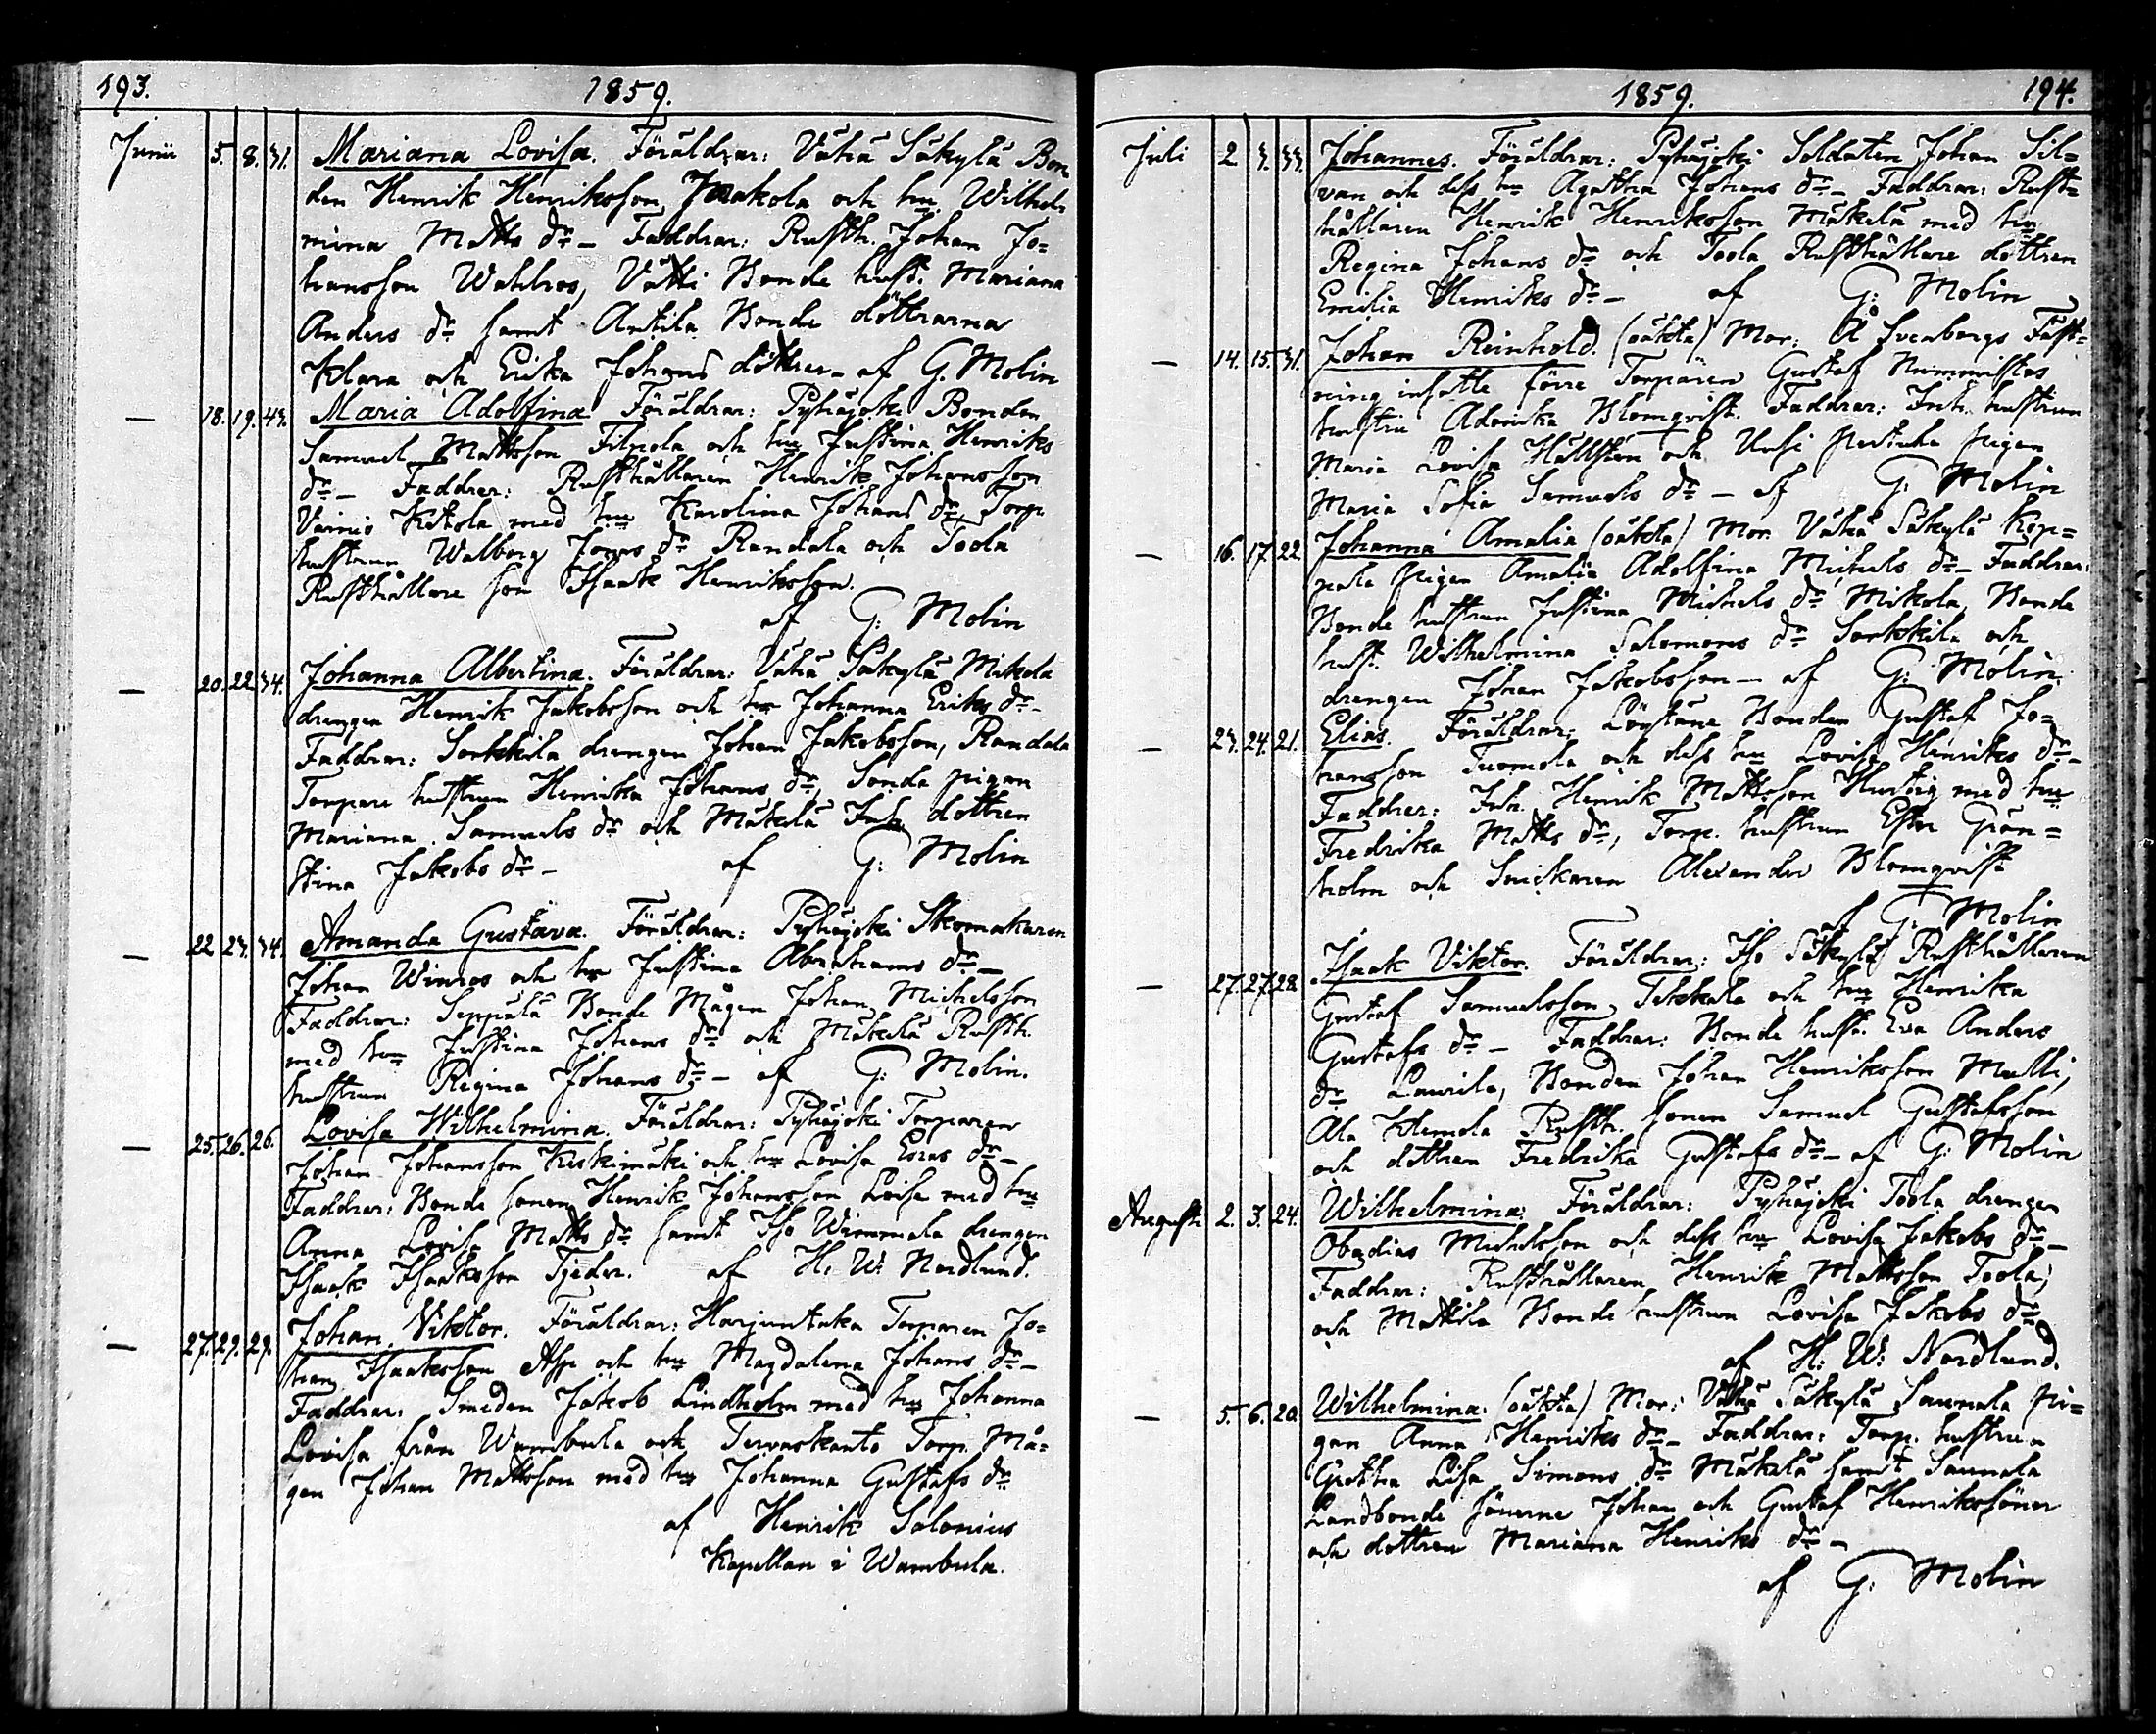 193. 1859.
Junii 5. 8. 31. Mariana Lovisa. Föräldrar: Vähä Säkylä Bon-
den Henrik Henriksson Jaakola och hu Wilhel-
mina Matts dr – Faddrar: Rusth. Johan Jo=
hansson Wahlros, Vätti Bonde hust. Mariana
Anders dr samt Antila Bonde döttrarna
Klara och Erika Johans döttrar – af G. Molin
— 18. 19. 43. Maria Adolfina Föräldrar: Pyhäjoki Bonden
Samuel Mattsson Filpola och hu Justina Henriks
dr – Faddrar: Rusthållaren Henrik Johansson
Vainio Ketola med hu Karolina Johans dr, Torp.
hustrun Walborg Jonas dr Randala och Toola
Rusthållare son Isaak Henriksson.
af G: Molin
— 20. 22. 34. Johanna Albertina. Föräldrar: Vähä Säkylä Mikola
drengen Henrik Jakobsson och hu Johanna Eriks dr –
Faddrar: Sorkkila drengen Johan Jakobsson, Randala
Torpare hustrun Henrika Johans dr, Sonda pigan
Mariana Samuels dr och Mäkelä Inh. dottren
Stina Jakobs dr – af G: Molin
— 22 23. 34. Amanda Gustava. Föräldrar: Pyhäjoki Skomakaren
Johan Winros och hu Justina Abrahams dr –
Faddrar: Seppälä Bonde Mågen Johan Michelsson
med hu Justina Johans dr och Mäkelä Rusth.
hustrun Regina Johans dr – af G: Molin.
— 25. 26. 26. Lovisa Wilhelmina. Föräldrar: Pyhäjoki Torparen
Johan Johansson Keskimäki och hu Lovisa Esras dr –
Faddrar: Bonde sonen Henrik Johansson Loisa med hu
Anna Lovisa Matts dr samt Iso Wimmala drengen
Isaak Isaaksson Tjeder. af H. W: Nordlund.
— 27. 29. 29. Johan Viktor. Föräldrar: Harjuntaka Torparen Jo=
han Isaaksson Asp och hu Magdalena Johans dr –
Faddrar: Smeden Jakob Lindholm med hu Johanna
Lovisa från Wambula och Tervaskanto Torp. Må=
gen Johan Mattsson med hu Johanna Gustafs dr
af Henrik Salonius
Kapellan i Wambula.
1859. 194.
Juli 2 3. 33. Johannes. Föräldrar: Pyhäjoki Soldaten Johan Sil=
van och dess hu Agatha Johans dr – Faddrar: Rust=
hållaren Henrik Henriksson Mäkelä med hu
Regina Johans dr och Toola Rusthållare dottren
Emilia Henriks dr – af G: Molin
— 14. 15. 31. Johan Reinhold. (oäkta) Mor: Å Sveaborgs Fäst=
ning insatte förre Torparen Gustaf Nummistos
hustru Adorika Blomqvist. Faddrar: Inh. hustrun
Maria Lovisa Hällsten och Uusi Perttula pigan
Maria Sofia Samuels dr – af G: Molin
— 16. 17. 22 Johanna Amalia (oäkta) Mor. Vähä Säkylä Kop=
pala pigan Amalia Adolfina Michels dr – Faddrar:
Bonde hustrun Justina Michels dr Mikola, Bonde
hust. Wilhelmina Salomons dr Sorkkila och
drengen Johan Jakobsson – af G: Molin.
— 23. 24. 21. Elias. Föräldrar: Löytäne Bonden Gustaf Jo=
hansson Tuomola och dess hu Lovisa Henriks dr –
Faddrar: Inh. Henrik Mattsson Hurtig med hu
Fredrika Matts dr, Torp. hustrun Ester Grön=
holm och Snickaren Alexander Blomqvist
af G: Molin
— 27. 27. 28. Isaak Viktor. Föräldrar: Iso Säkylä Rusthållaren
Gustaf Samuelsson Tekkala och hu Henrika
Gustafs dr – Faddrar: Bonde hust. Eva Anders
dr Laurila, Bonden Johan Henriksson Mulli,
Ala Klemola Rusth. sonen Samuel Gustafsson
och dottren Fredrika Gustafs dr – af G: Molin
Augusti 2. 3. 24. Wilhelmina: Föräldrar: Pyhäjoki Toola drengen
Obadias Michelsson och dess hu Lovisa Jakobs dr –
Faddrar: Rusthållaren Henrik Mattsson Toola,
och Mattila Bonde hustrun Lovisa Jakobs dr
af H: W: Nordlund.
— 5. 6. 20. Wilhelmina: (oäkta) Mor: Vähä Säkylä Saunala pi=
gan Anna Henriks dr – Faddrar: Torp. hustrun
Gretha Lisa Simons dr Mäkelä samt Saunala
Landbonde sönerne Johan och Gustaf Henrikssöner
och dottren Mariana Henriks dr –
af G: Molin